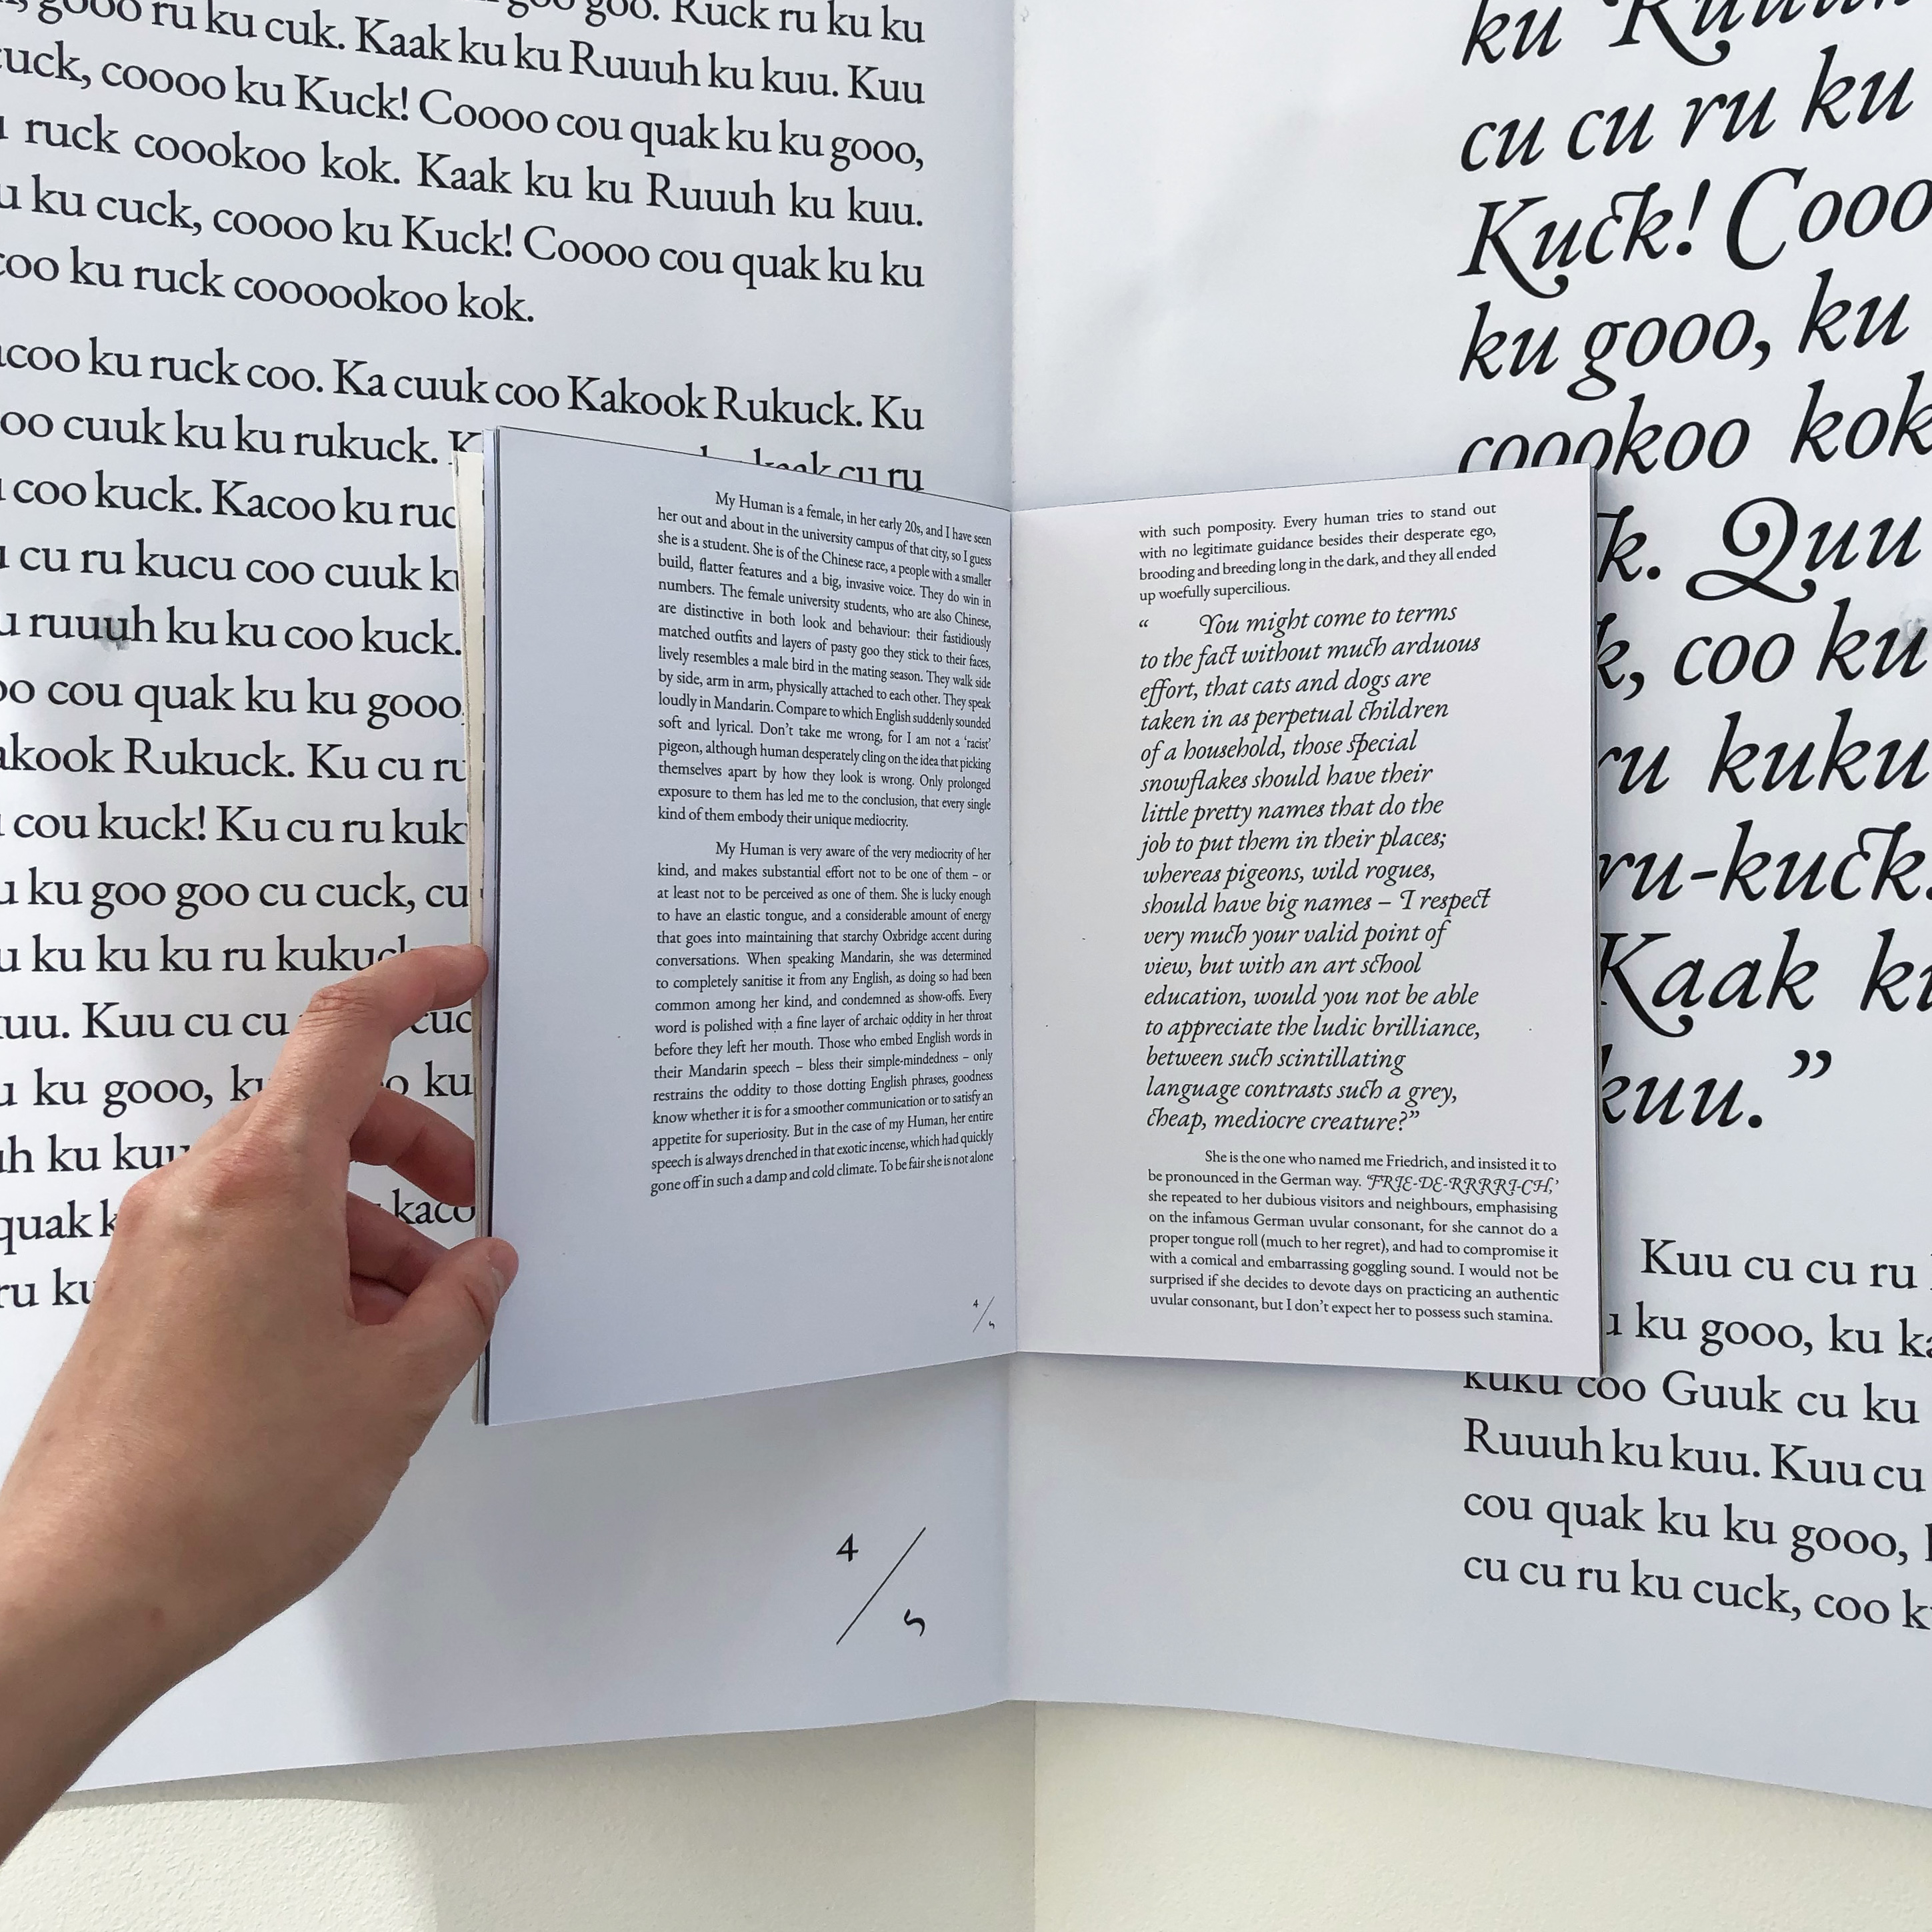 gooo ru ku cuk. Kaak ku ku Ruuuh ku kuu. Kuu
goo. Ruck ru ku ku
coooo ku Kuck! Coooo cou quak ku ku gooo,
ruck coookoo kok. Kaak ku ku Ruuuh ku kuu.
ku cuck, coooo ku Kuck! Coooo cou quak ku ku
ku ruck cooookoo kok.
ku ruck coo. Ka cuuk coo Kakook Rukuck. Ku
cuuk ku ku rukuck.
kaak cu ru
coo kuck. Kacoo ku
cu ru kucu coo cuuk
ruuuh ku ku coo kuck.
cou quak ku ku gooo
Rukuck. Ku cu ru
cou kuck! Ku cu ru
ku goo goo cu cuck, cu
ku ku ku ru
Kuu cu cu
ku gooo, ku
ku kuu
quak
ru ku
4/5
My Human is a female, in her early 20s, and I have seen
her out and about in the university campus of that city, so I guess
she is a student. She is of the Chinese race, a people with a smaller
build, flatter features and a big, invasive voice. They do win in
numbers. The female university students, who are also Chinese,
are distinctive in both look and behaviour: their fastidiously
matched outfits and layers of pasty goo they stick to their faces,
lively resembles a male bird in the mating season. They walk side
by side, arm in arm, physically attached to each other. They speak
loudly in Mandarin. Compare to which English suddenly sounded
soft and lyrical. Don’t take me wrong, for I am not a ‘racist’
pigeon, although human desperately cling on the idea that picking
themselves apart by how they look is wrong. Only prolonged
exposure to them has led me to the conclusion, that every single
kind of them embody their unique mediocrity.
My Human is very aware of the very mediocrity of her
kind, and makes substantial effort not to be one of them – or
at least not to be perceived as one of them. She is lucky enough
to have an elastic tongue, and a considerable amount of energy
that goes into maintaining that starchy Oxbridge accent during
conversations. When speaking Mandarin, she was determined
to completely sanitise it from any English, as doing so had been
common among her kind, and condemned as show-offs. Every
word is polished with a fine layer of archaic oddity in her throat
before they left her mouth. Those who embed English words in
their Mandarin speech – bless their simple-mindedness – only
restrains the oddity to those dotting English phrases, goodness
know whether it is for a smoother communication or to satisfy an
appetite for superiosity. But in the case of my Human, her entire
speech is always drenched in that exotic incense, which had quickly
gone off in such a damp and cold climate. To be fair she is not alone
4/5
with such pomposity. Every human tries to stand out
with no legitimate guidance besides their desperate ego,
brooding and breeding long in the dark, and they all ended
up woefully supercilious.
“ You might come to terms
to the fact without much arduous
effort, that cats and dogs are
taken in as perpetual children
of a household, those special
snowflakes should have their
little pretty names that do the
job to put them in their places;
whereas pigeons, wild rogues,
should have big names – I respect
very much your valid point of
view, but with an art school
education, would you not be able
to appreciate the ludic brilliance,
between such scintillating
language contrasts such a grey,
cheap, mediocre creature?”
She is the one who named me Friedrich, and insisted it to
be pronounced in the German way. ‘FRIE-DE-RRRRI-CH,’
she repeated to her dubious visitors and neighbours, emphasising
on the infamous German uvular consonant, for she cannot do a
proper tongue roll (much to her regret), and had to compromise it
with a comical and embarrassing goggling sound. I would not be
surprised if she decides to devote days on practicing an authentic
uvular consonant, but I don’t expect her to possess such stamina.
ku
cu cu ru ku
Kuck! Cooo
ku gooo, ku
coookoo kok
Quu
coo ku
ru kuku
ru-kuck.
Kaak
kuu.”
Kuu cu cu ru
ku gooo, ku
kuku coo Guuk cu ku
Ruuuh ku kuu. Kuu cu
cou quak ku ku gooo,
cu cu ru ku cuck, coo